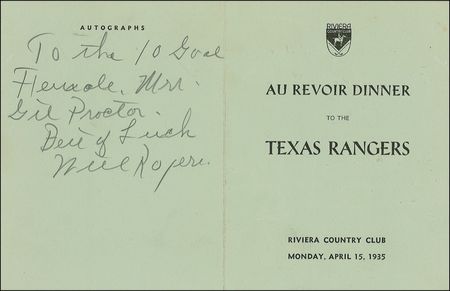 AUTOGRAPHS
To the 10 Goal
Female, Mrs.
Gil Proctor.
Best of Luck
Will Rogers.
RIVIERA
COUNTRY CLUB
AU REVOIR DINNER
TO THE
TEXAS RANGERS
RIVIERA COUNTRY CLUB
MONDAY, APRIL 15, 1935